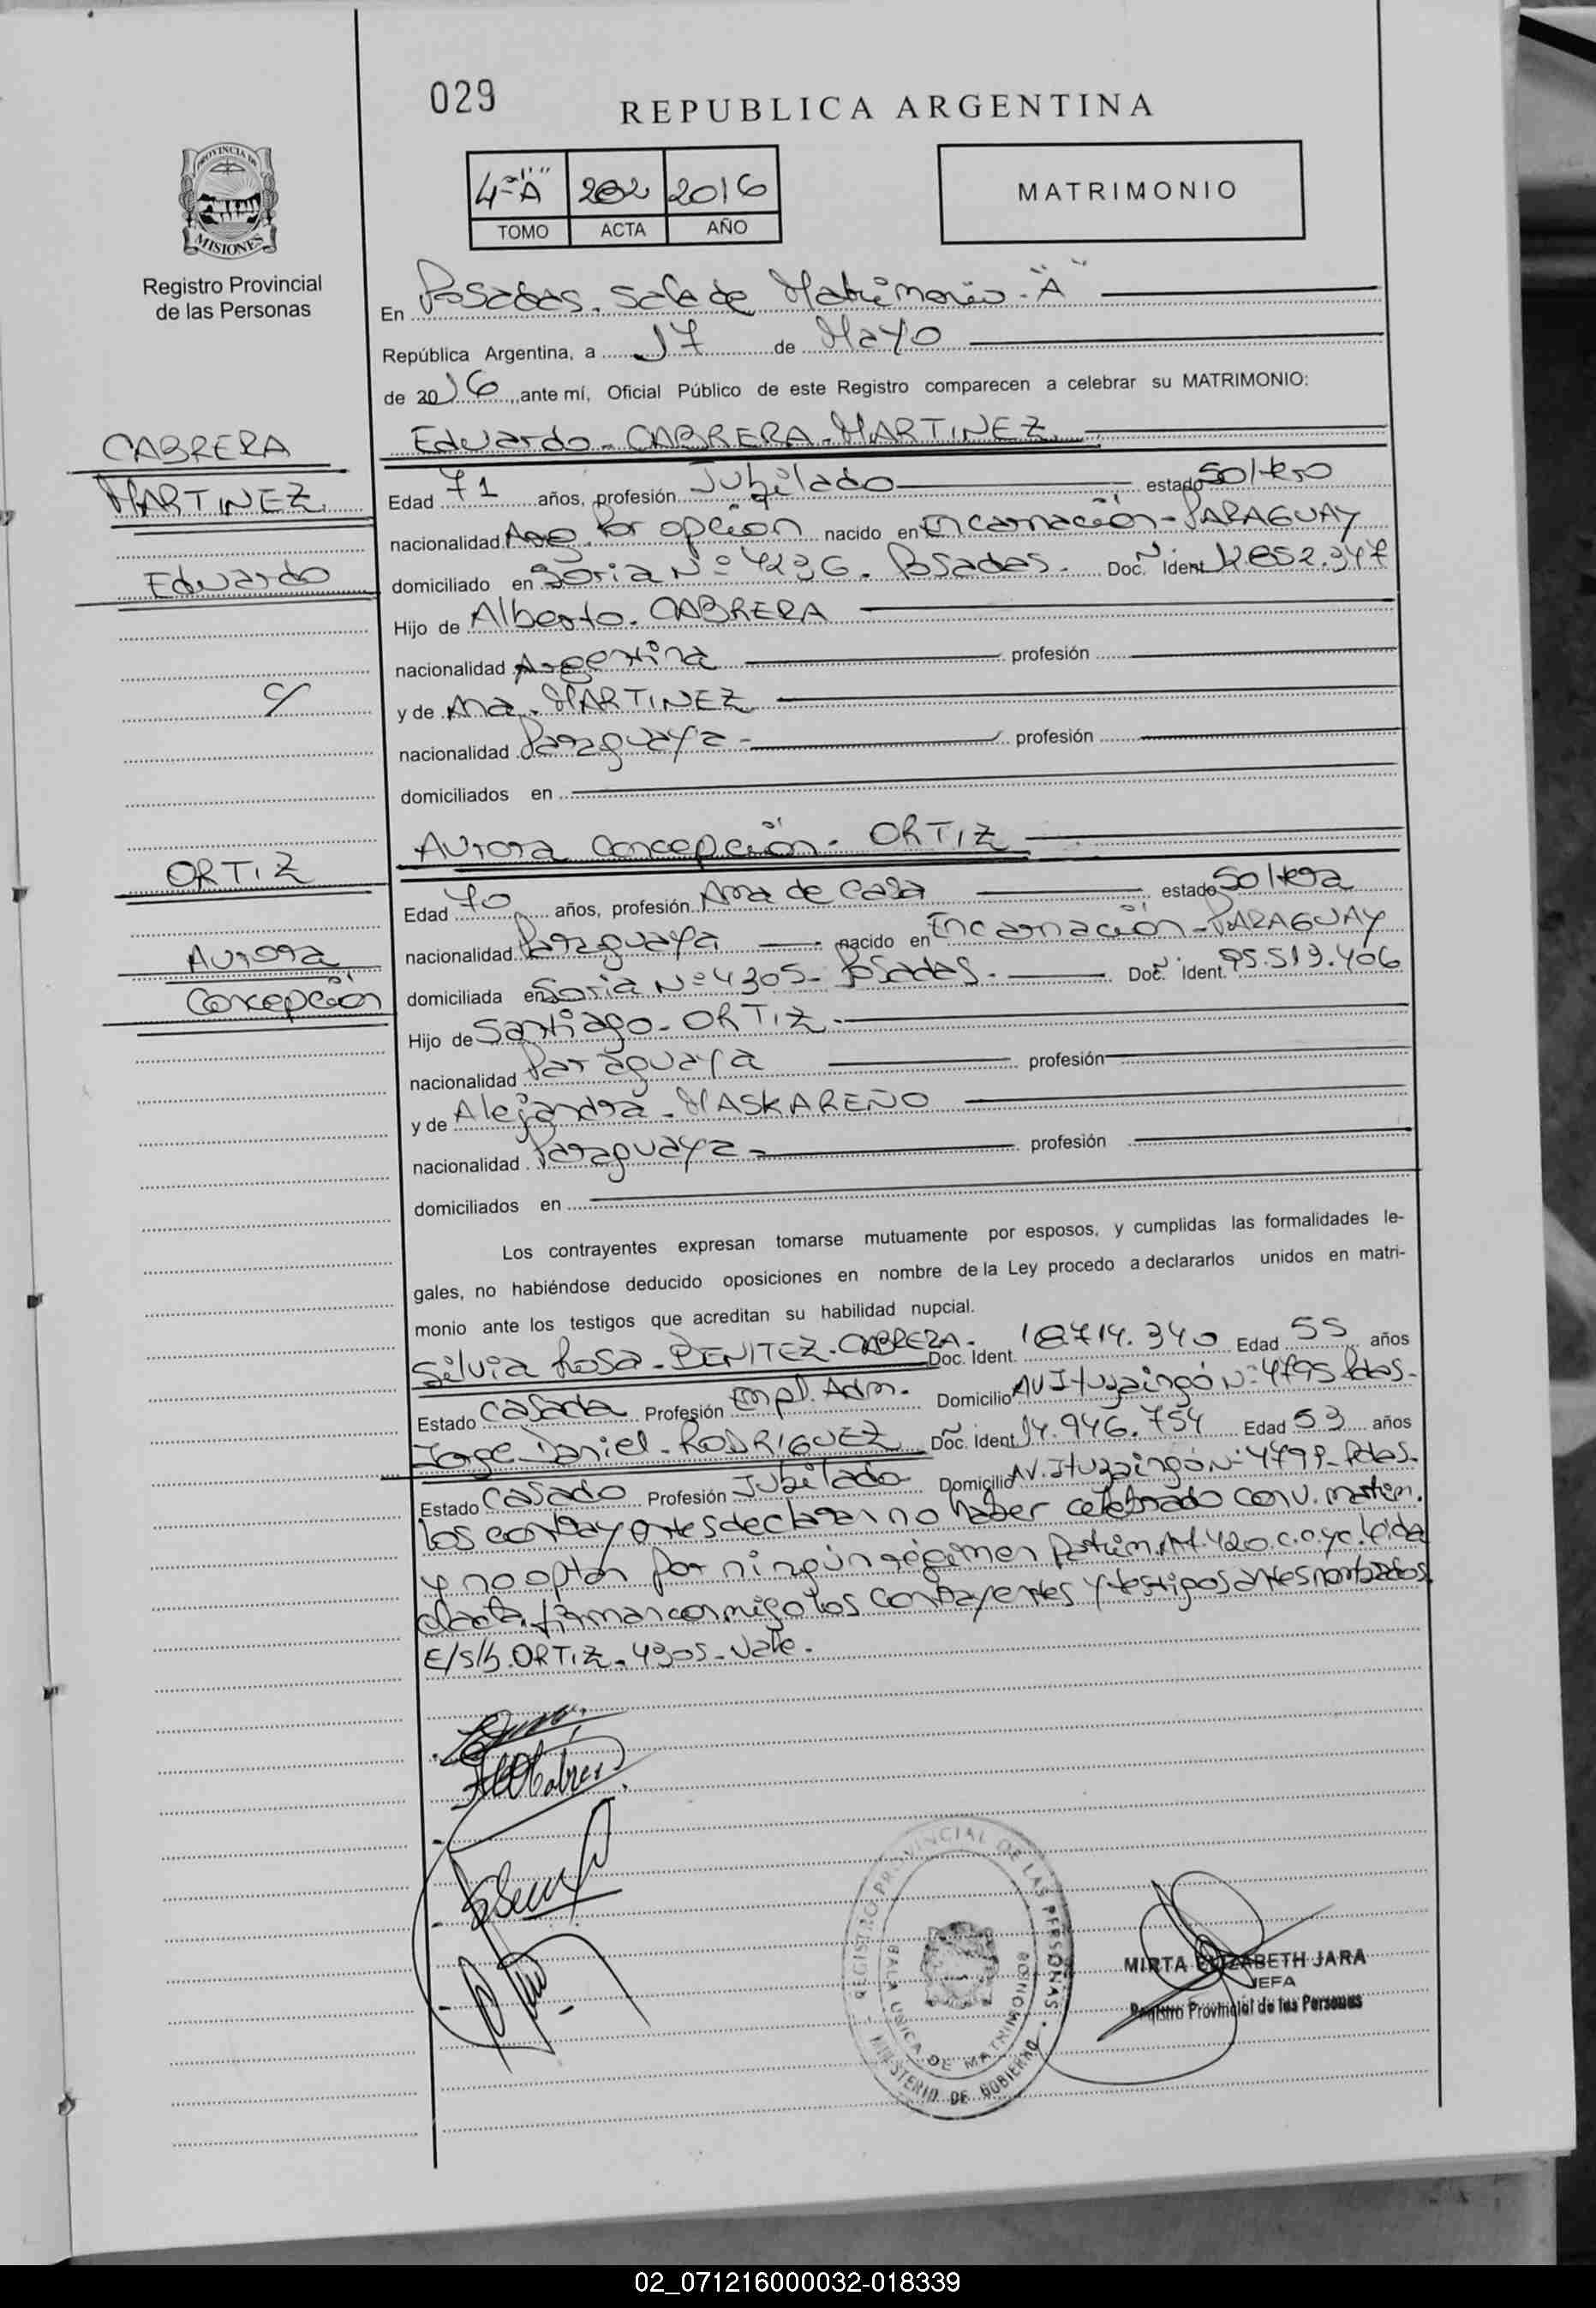 029
REPUBLICA ARGENTINA
4º "A" 202 2016
TOMO ACTA AÑO
MATRIMONIO
PROVINCIA DE
MISIONES
Registro Provincial
de las Personas
En Posadas. Sala de Matrimonio - "A"
República Argentina, a 17 de Mayo
de 2016, ante mí, Oficial Público de este Registro comparecen a celebrar su MATRIMONIO:
CABRERA
MARTINEZ
Eduardo
c/
ORTIZ
Aurora
Concepción
Eduardo - CABRERA - MARTINEZ
Edad 71 años, profesión Jubilado estado Soltero
nacionalidad Arg. Por opción nacido en Encarnación - PARAGUAY
domiciliado en Soria Nº 4236. Posadas. Doc. Ident. 12.852.347
Hijo de Alberto. CABRERA
nacionalidad Argentina profesión
y de Ana. MARTINEZ
nacionalidad Paraguaya - profesión
domiciliados en
Aurora Concepción - ORTIZ
Edad 70 años, profesión Ama de Casa estado Soltera
nacionalidad Paraguaya nacido en Encarnación - PARAGUAY
domiciliada en Soria Nº 4305 - Posadas. Doc. Ident. 95.519.406
Hijo de Santiago - ORTIZ
nacionalidad Paraguaya profesión
y de Alejandra - MASKAREÑO
nacionalidad Paraguaya - profesión
domiciliados en
Los contrayentes expresan tomarse mutuamente por esposos, y cumplidas las formalidades le-
gales, no habiéndose deducido oposiciones en nombre de la Ley procedo a declararlos unidos en matri-
monio ante los testigos que acreditan su habilidad nupcial.
Silvia Rosa - BENITEZ - CABRERA - Doc. Ident. 18.714.340 Edad 55 años
Estado Casada Profesión Empl. Adm. Domicilio AV Ituzaingó Nº 4795 Pdas.
Jorge Daniel - RODRIGUEZ Doc. Ident. 14.946.754 Edad 53 años
Estado Casado Profesión Jubilado Domicilio AV. Ituzaingó Nº 4799 - Pdas.
Los contrayentes declaran no haber celebrado conv. matrim.
y no optan por ningún régimen Patrim. Art. 420. C.C. y C. Leída
el acta, firman conmigo los contrayentes y testigos antes nombrados.
E/S/b. ORTIZ - 4305 - Vale.
REGISTRO PROVINCIAL DE LAS PERSONAS
MINISTERIO DE GOBIERNO
SALA UNICA DE MATRIMONIOS
MIRTA ELIZABETH JARA
JEFA
Registro Provincial de las Personas
02_071216000032-018339